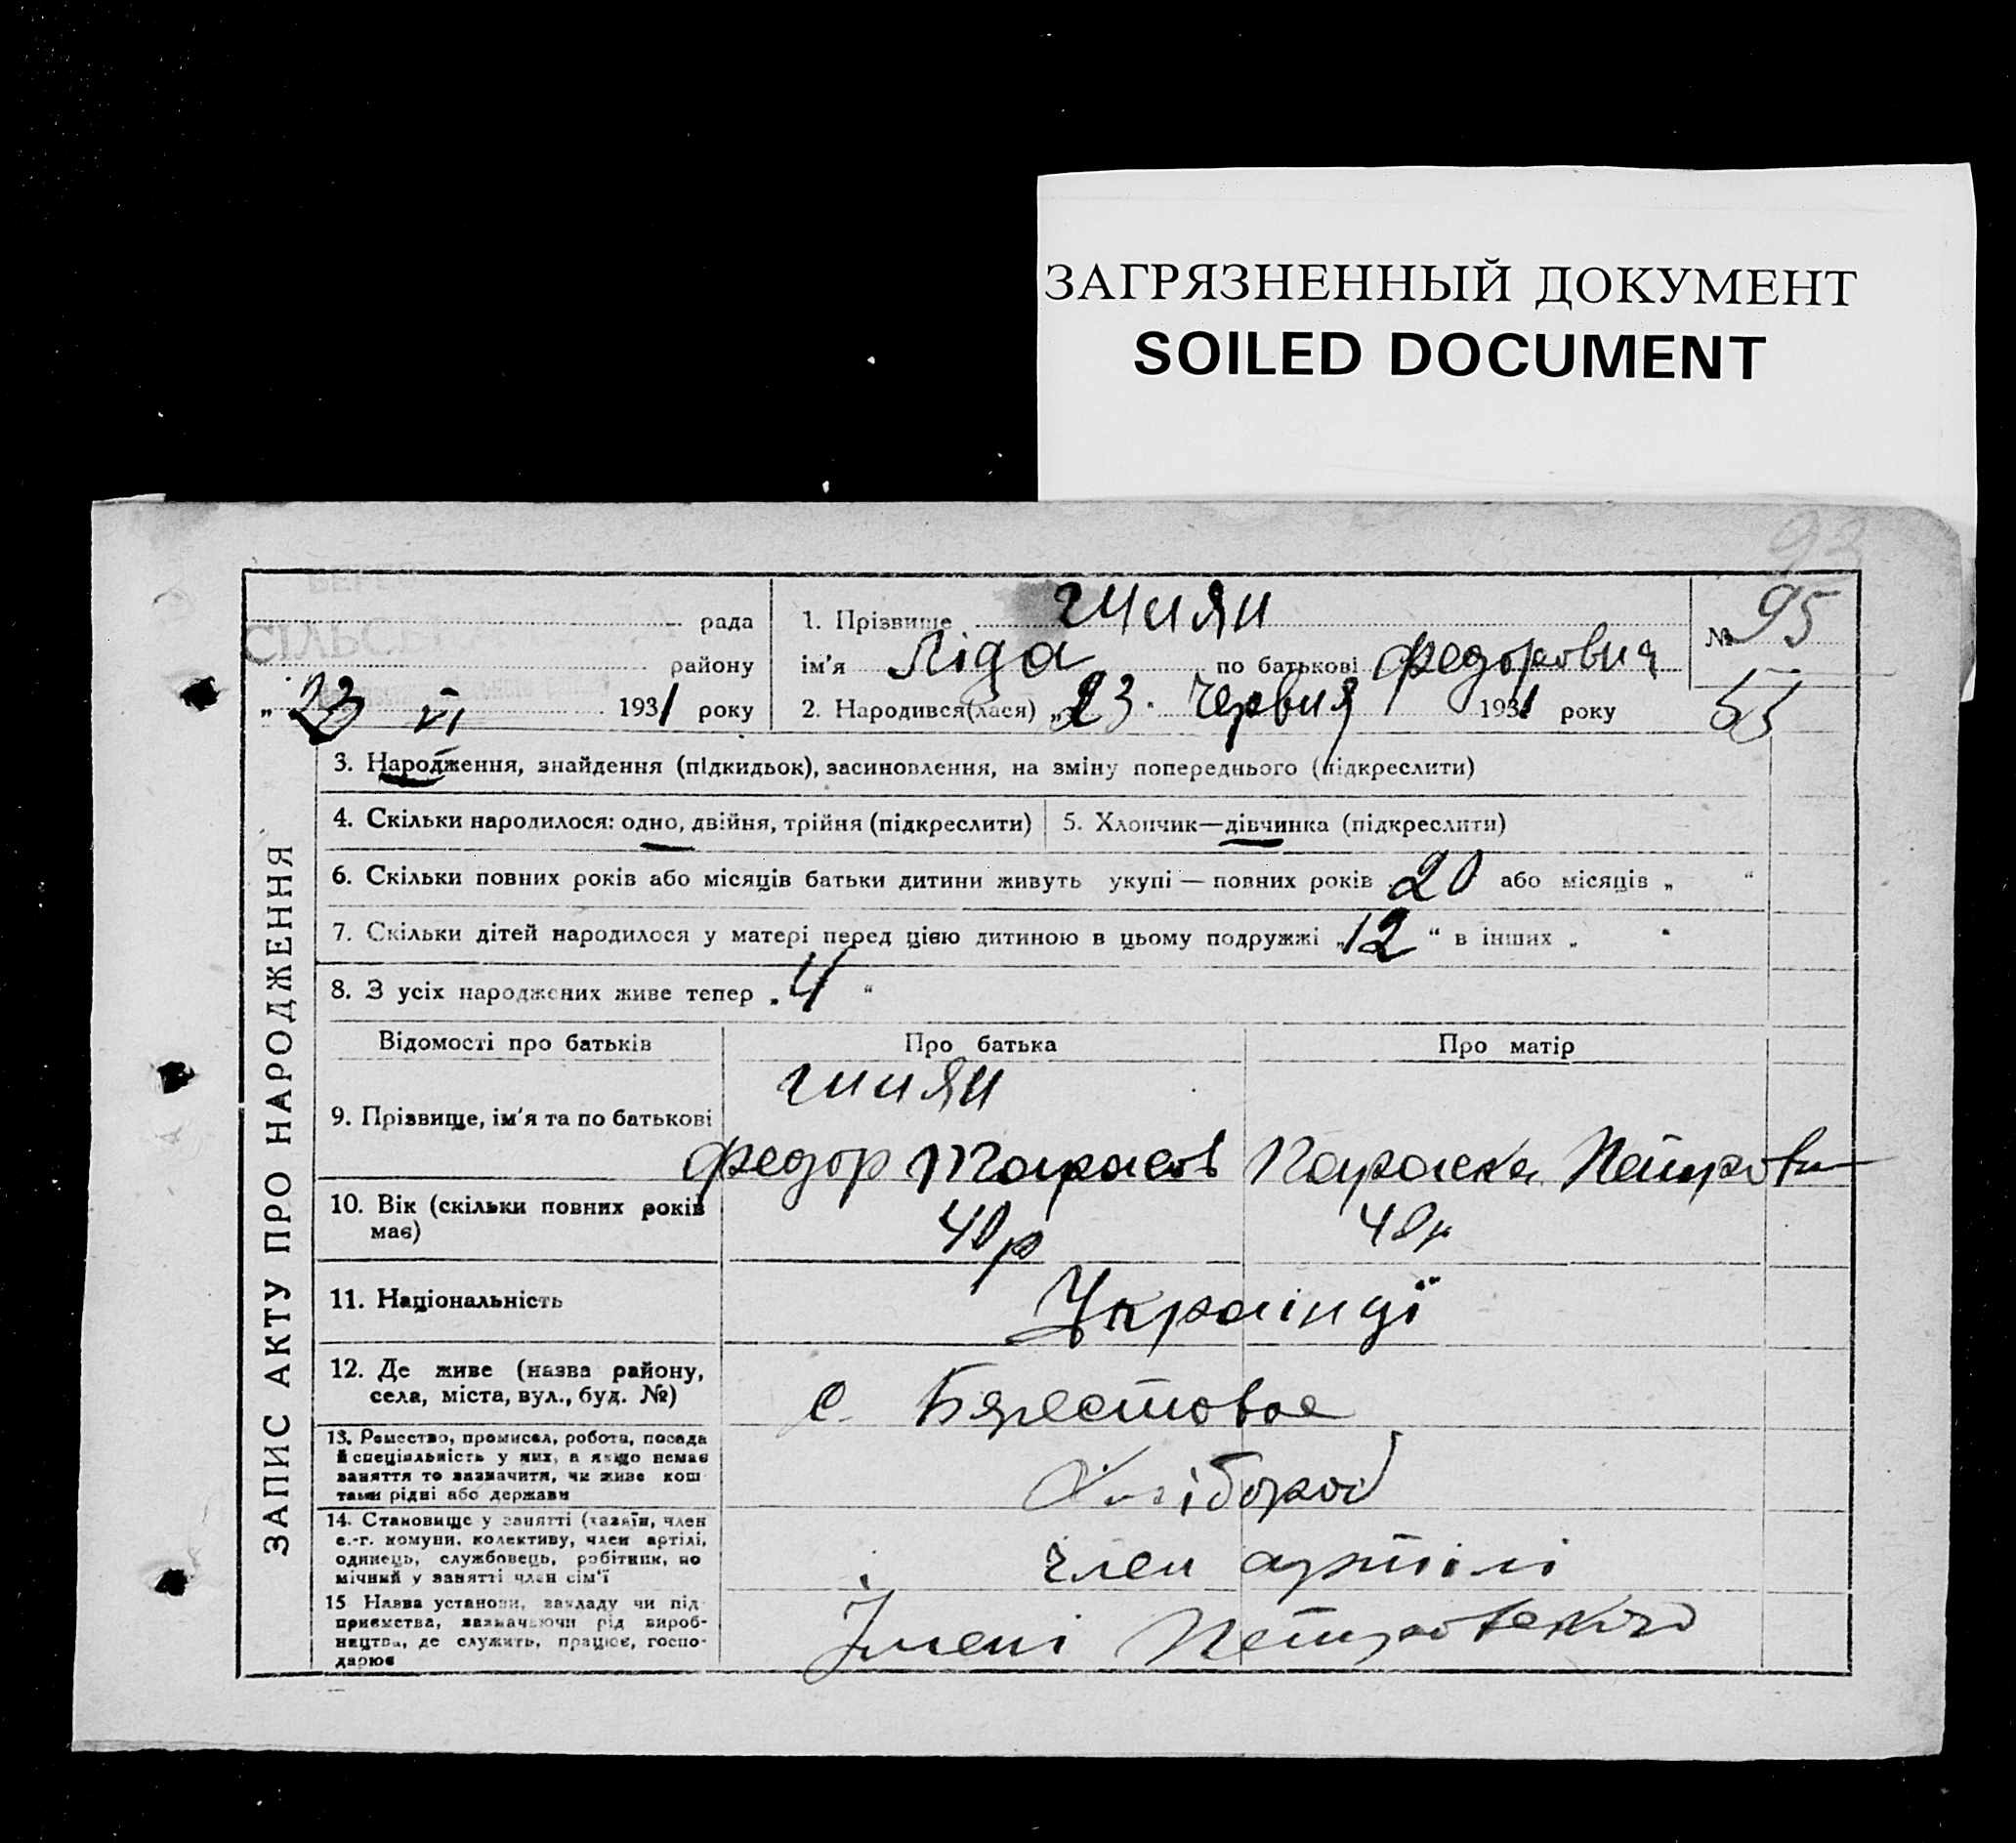 ЗАГРЯЗНЕННЫЙ ДОКУМЕНТ
SOILED DOCUMENT
93
рада
СІЛЬСЬ
району
„23 VI 1931 року
1. Прізвище Гниян
ім'я Ліда по батькові Федоровна
2. Народився(лася) „23. Червня 1931 року
№ 95
53
ЗАПИС АКТУ ПРО НАРОДЖЕННЯ
3. Народження, знайдення (підкидьок), засиновлення, на зміну попереднього (підкреслити)
4. Скільки народилося: одно, двійня, трійня (підкреслити)
5. Хлопчик—дівчинка (підкреслити)
6. Скільки повних років або місяців батьки дитини живуть укупі — повних років 20 або місяців „ “
7. Скільки дітей народилося у матері перед цією дитиною в цьому подружжі „12“ в інших „ “
8. З усіх народжених живе тепер „4“
Відомості про батьків Про батька Про матір
9. Прізвище, ім'я та по батькові
Гниян
Федор Тарасов Параска Петровн
10. Вік (скільки повних років має)
40р 40р
11. Національність
Українці
12. Де живе (назва району,
села, міста, вул., буд. №)
с. Берестовое
13. Ремество, промисел, робота, посада
й спеціяльність у них, а якщо немає
заняття то зазначити, чи живе кош
тами рідні або держави
Хлібороб
14. Становище у занятті (хазяїн, член
с.-г. комуни, колективу, член артілі,
одинець, службовець, робітник, по
мічний у занятті член сім'ї
член артілі
15 Назва установи, закладу чи під
приємства, зазначаючи рід вироб-
ництва, де служить, працює, госпо-
дарює
Імені Петровського